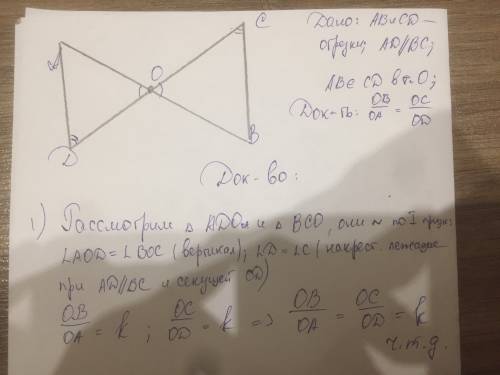 A
C
O
D
B
Дано: AB и CD —
отрезки, AD//BC;
AB∈CD в т.O;
Док-ть: OB/OA = OC/OD
Док-во:
1) Рассмотрим △ ADO и △ BCO, они ~ по I призн:
∠AOD = ∠BOC (вертикал); ∠D = ∠C (накрест. лежащие
при AD//BC и секущей CD)
OB/OA = k ; OC/OD = k => OB/OA = OC/OD = k
ч.т.д.